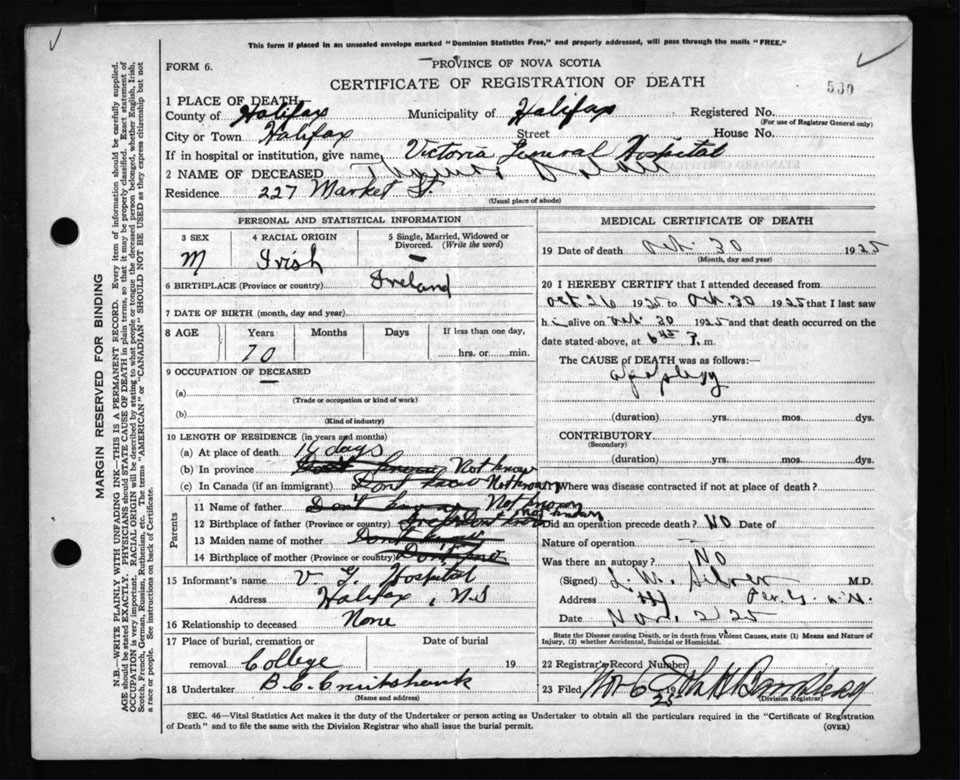 This form if placed in an unsealed envelope marked "Dominion Statistics Free," and properly addressed, will pass through the mails "FREE."
FORM 6.
PROVINCE OF NOVA SCOTIA
CERTIFICATE OF REGISTRATION OF DEATH
530
1 PLACE OF DEATH
County of Halifax Municipality of Halifax Registered No.
(For use of Registrar General only)
City or Town Halifax Street House No.
If in hospital or institution, give name Victoria General Hospital
2 NAME OF DECEASED Thomas
Residence 227 Market St.
(Usual place of abode)
PERSONAL AND STATISTICAL INFORMATION
3 SEX 4 RACIAL ORIGIN 5 Single, Married, Widowed or
Divorced. (Write the word)
M Irish —
6 BIRTHPLACE (Province or country) Ireland
7 DATE OF BIRTH (month, day and year)
8 AGE Years Months Days If less than one day,
70 hrs. or min.
9 OCCUPATION OF DECEASED —
(a)
(Trade or occupation or kind of work)
(b)
(Kind of industry)
10 LENGTH OF RESIDENCE (in years and months)
(a) At place of death days
(b) In province Don't know Not know
(c) In Canada (if an immigrant) Don't know Not known
Parents
11 Name of father Don't know Not known
12 Birthplace of father (Province or country) Don't know not known
13 Maiden name of mother Don't know
14 Birthplace of mother (Province or country) Don't know
15 Informant's name V G. Hospital
Address Halifax, N.S
16 Relationship to deceased None
17 Place of burial, cremation or Date of burial
removal College 19
18 Undertaker B. C. Cruikshank
(Name and address)
MEDICAL CERTIFICATE OF DEATH
19 Date of death Oct. 30 1925
(Month, day and year)
20 I HEREBY CERTIFY that I attended deceased from
Oct 26 1925 to Oct. 30 1925 that I last saw
h i alive on Oct. 30 1925 and that death occurred on the
date stated above, at P. m.
The CAUSE of DEATH was as follows:
apoplexy
(duration) yrs. mos. dys.
CONTRIBUTORY
(Secondary)
(duration) yrs. mos. dys.
Where was disease contracted if not at place of death?
Did an operation precede death? NO Date of
Nature of operation —
Was there an autopsy? NO
(Signed) M.D.
Address Hx
Date Nov. 2/25
State the Disease causing Death, or in death from Violent Causes, state (1) Means and Nature of
Injury, (2) whether Accidental, Suicidal or Homicidal.
22 Registrar's Record Number
23 Filed Nov 6 1925
(Division Registrar)
SEC. 46—Vital Statistics Act makes it the duty of the Undertaker or person acting as Undertaker to obtain all the particulars required in the "Certificate of Registration
of Death" and to file the same with the Division Registrar who shall issue the burial permit. (OVER)
MARGIN RESERVED FOR BINDING
N.B.—WRITE PLAINLY WITH UNFADING INK—THIS IS A PERMANENT RECORD. Every item of information should be carefully supplied.
AGE should be stated EXACTLY. PHYSICIANS should STATE CAUSE OF DEATH in plain terms, so that it may be properly classified. Exact statement of
OCCUPATION is very important. RACIAL ORIGIN will be described by stating to what people or tongue the deceased person belonged, whether English, Irish,
Scotch, French, German, Russian, Ruthenian, etc. The terms "AMERICAN" or "CANADIAN" SHOULD NOT BE USED as they express citizenship but not
a race or people. See instructions on back of Certificate.